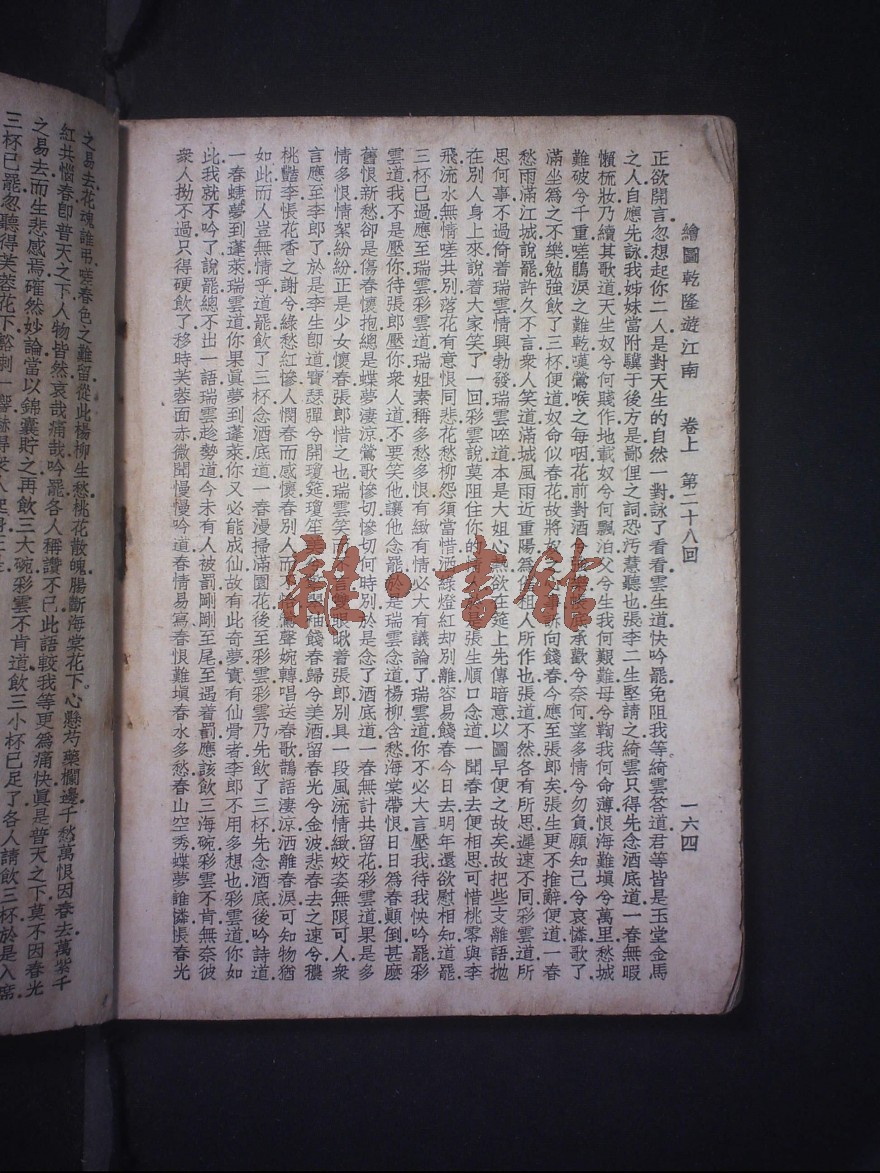 繪圖乾隆遊江南　卷上　第二十八回　一六四
正欲開言忽想起你二人是對天生的自然一對詠了看看雲生道快吟罷免阻我等綺雲答道君等皆是玉堂金馬
之人自應先詠我姊妹當附驥于後方是鄙俚之詞恐汚慧聽也張李二生堅請之綺雲只得先念酒底道一春無暇
懶梳妝乃續其歌道天生奴兮何賤作地載奴兮何飄泊父兮生我何艱難母兮鞠我何命薄恨海難塡兮萬里愁城
難破兮千重嗟鵑淚之難乾嘆鶯喉之每咽花前對酒兮承歡兮奈何葉多情兮勿負願知己兮哀憐歌了
滿坐爲之不樂勉強飲了三杯便道奴命似春花故將奴訴向餞春今應至張郎矣張生更不推辭便道一春
愁雨滿江城說罷許久不言衆人笑道滿城風雨近重陽爲租人所作也張道不然各有所思遲速不同彩雲道所
思何事不過倚着瑞雲情興勃發瑞雲啐道本是大姐心欲在筵上先傳暗意以圖早便之故矣故把些支離語拋
在別人身上來說着大家笑了一回彩雲說莫阻住你的是張生順口念道一聞春去便相思可惜桃零與李
飛流水無情嗟共別落花有意恨同悲花愁柳怨須當惜酒綠燈紅却別離容易餞春今日去明年還欲慰相知道罷
三杯已過應至瑞雲彩雲道瑞姐素稱多愁多恨有緻有情必大有議論了瑞雲道你不必大言壓我待我快吟罷彩
雲道我不是壓你待張郎壓你衆人道不要笑他讓他念罷於是瑞雲念道楊柳含愁海棠帶恨日日爲春顚倒甚麽
舊恨新愁卻是傷春懷抱總是蝶夢淒涼鶯歌慘切慘切何時別於是念了酒底道一春無計共留花彩雲道果是多
情多恨情絮紛紛正是少女懷春張郎惜之也瑞雲笑而不言雙眼瞅着張郎別具一段風流情緻姣姿無限可人衆
言應至李郎了於是李生卽道寶瑟彈兮開瓊筵瓊笙美兮餞春歸兮美酒留春光兮金波悲春去之速兮穠
桃豔李悵花香之謝兮綠愁紅慘人憫春而感懷春別人而不語鶯聲婉轉唱送春歌鵲語淒涼洒離春淚可知物猶
如此而人豈無情乎道罷飲了三杯念酒底道一春漫掃滿園花後至彩雲彩雲乃先飲了三杯先念酒底後吟詩道
一春蜨夢到蓬萊瑞雲道你果眞夢到蓬萊你又必能成仙故有此奇夢實有仙骨者李郎不用多想也彩雲道你如
此我就不吟了說罷總不出一語瑞雲趁勢道今未有人被罰剛剛至尾至遇着罰應該飲三海碗彩雲不肯無奈彼
衆人拗不過只得硬飲了移時芙蓉面赤微聞慢慢吟道春情易寫春恨難塡春水多愁春山空秀蝶夢誰憐悵春光
之易去花魂誰弔嗟春色之難留從此楊柳生愁桃花散魄腸斷海棠花下心懸芍藥欄邊千愁萬恨因春去萬紫千
紅共惱春卽普天之下人物皆然哀哉痛哉吟罷各人稱讚不已此語較我等更爲痛快眞是普天之下莫不因春光
之易去而生悲感焉確然妙論當以錦囊貯之再飲三大碗彩雲不肯道飲三小杯已足了各人請飲三杯於是入席
三杯已罷忽聽得芙蓉花下豁剌一響嚇得衆人起身
雜·書館